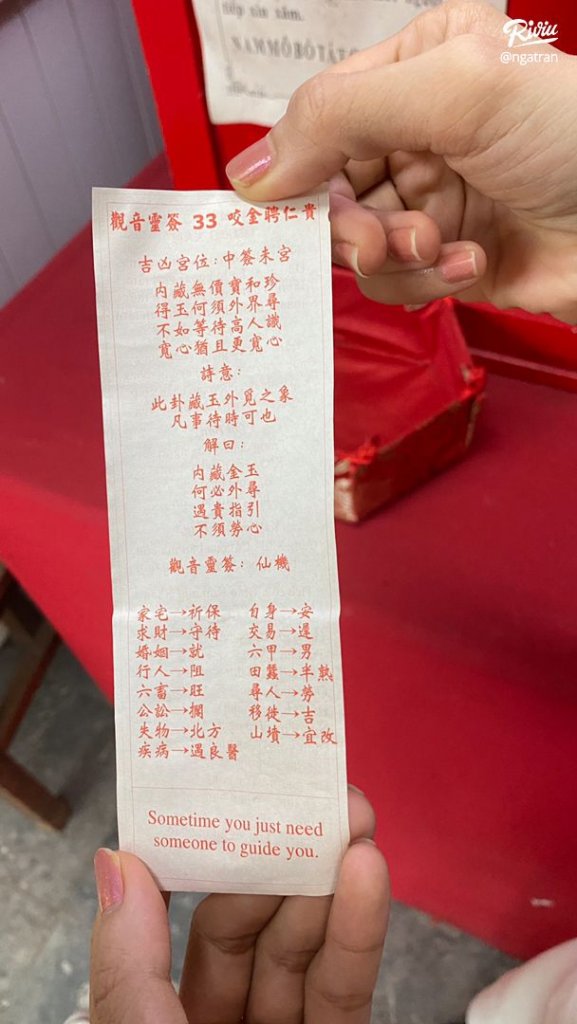 Riviu
@ngatran
NAMMÔBÔTÁT
觀音靈簽 33 咬金聘仁貴
吉凶宮位:中簽未宮
內藏無價寶和珍
得玉何須外界尋
不如等待高人識
寬心猶且更寬心
詩意:
此卦藏玉外覓之象
凡事待時可也
解曰:
內藏金玉
何必外尋
遇貴指引
不須勞心
觀音靈簽: 仙機
家宅→祈保 自身→安
求財→守待 交易→遲
婚姻→就 六甲→男
行人→阻 田蠶→半熟
六畜→旺 尋人→勞
公訟→擱 移徙→吉
失物→北方 山墳→宜改
疾病→遇良醫
Sometime you just need
someone to guide you.